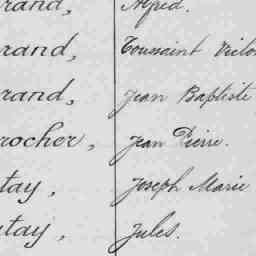 rand, Alfred.
rand, Toussaint Victo
rand, Jean Baptiste
rocher, Jean Pierre.
tay, Joseph Marie
tay, Jules.